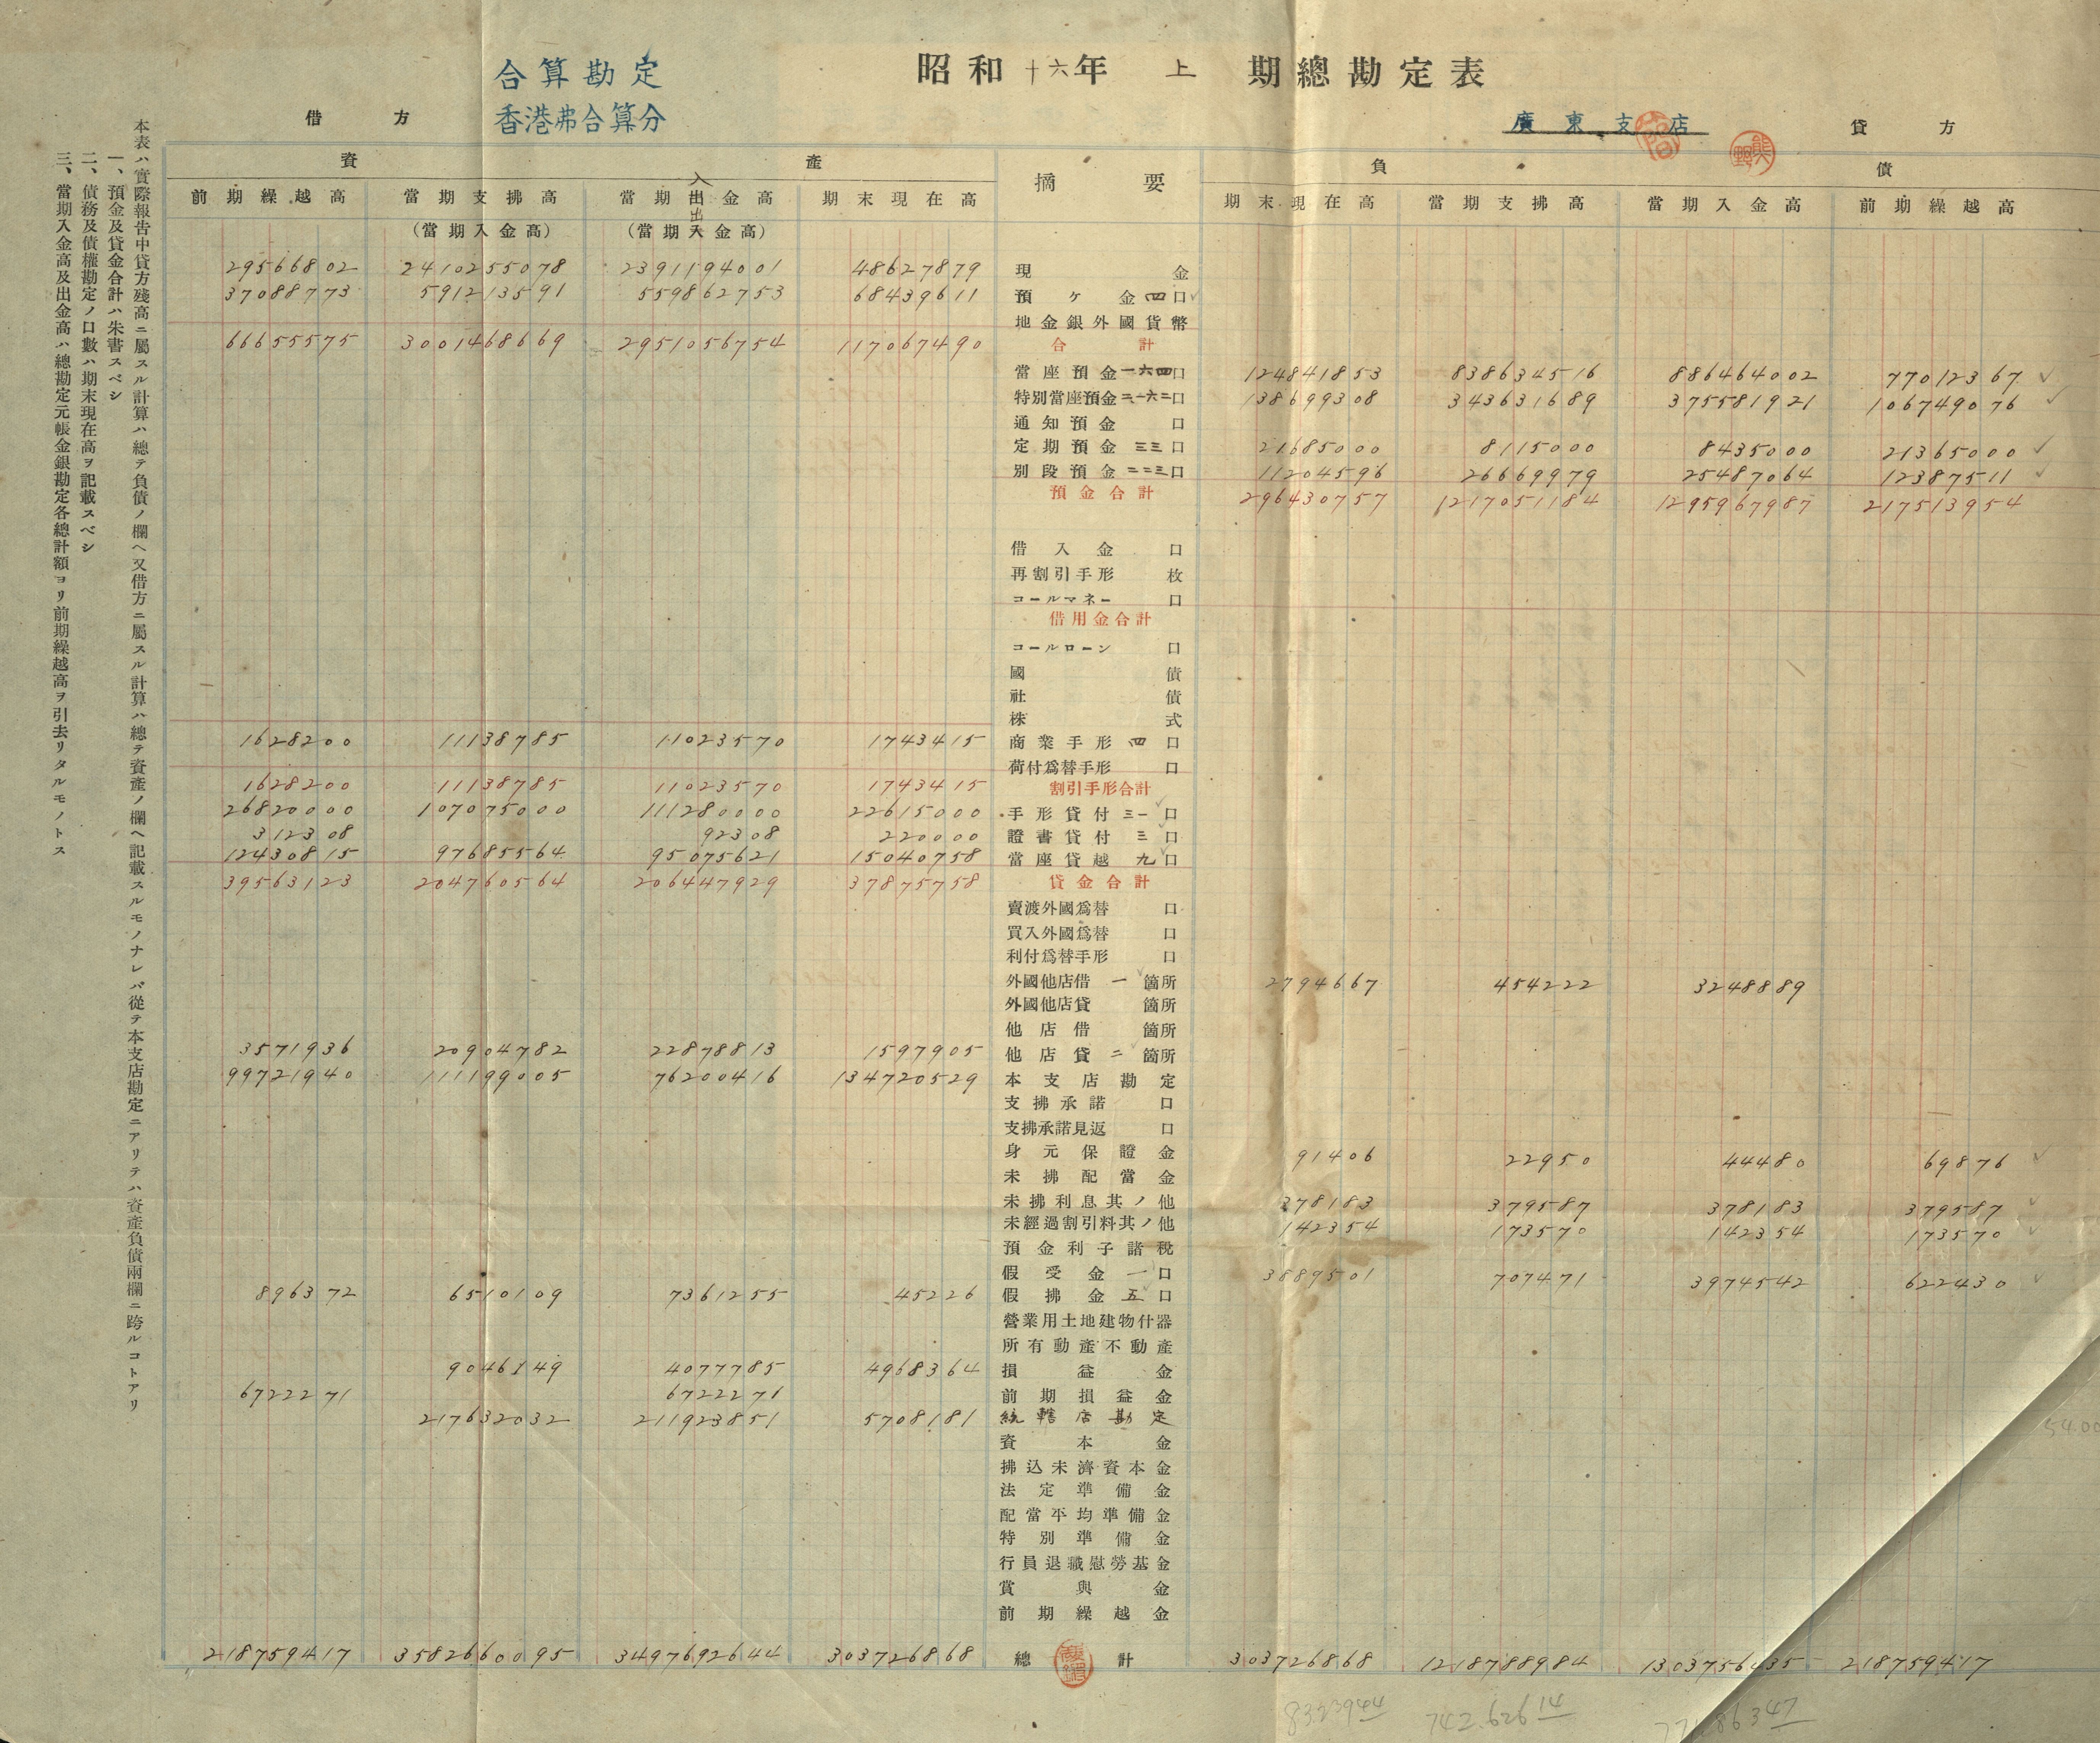 昭和十六年 上 期總勘定表
合算勘定
香港弗合算分
廣東支店
借方
貸方
資產
摘要
負債
前期繰越高 當期支拂高 當期出金高 期末現在高 期末現在高 當期支拂高 當期入金高 前期繰越高
入
出
(當期入金高) (當期入金高)
29566802 2410255078 2391194001 48627879 現金
37088773 591213591 559862753 68439611 預ヶ金 四口
地金銀外國貨幣
66655575 3001468669 2951056754 117067490 合計
當座預金 一六四口 124841853 838634516 886464002 77012367
特別當座預金 二一六二口 138699308 343631689 375581921 106749076
通知預金 口
定期預金 三三口 21685000 8115000 8435000 21365000
別段預金 二二三口 11204596 26669979 25487064 12387511
預金合計 296430757 1217051184 1295967987 217513954
借入金 口
再割引手形 枚
コールマネー 口
借用金合計
コールローン 口
國債
社債
株式
1628200 11138785 11023570 1743415 商業手形 四口
荷付爲替手形 口
1628200 11138785 11023570 1743415 割引手形合計
26820000 107075000 111280000 22615000 手形貸付 三一口
312308 92308 220000 證書貸付 三口
12430815 97685564 95075621 15040758 當座貸越 九口
39563123 204760564 206447929 37875758 貸金合計
賣渡外國爲替 口
買入外國爲替 口
利付爲替手形 口
外國他店借 一箇所 2794667 454222 3248889
外國他店貸 箇所
他店借 箇所
3571936 20904782 22878813 1597905 他店貸 二箇所
99721940 111199005 76200416 134720529 本支店勘定
支拂承諾 口
支拂承諾見返 口
身元保證金 91406 22950 44480 69876
未拂配當金
未拂利息其ノ他 378183 379587 378183 379587
未經過割引料其ノ他 142354 173570 142354 173570
預金利子諸稅
假受金 一口 3889501 707471 3974542 622430
896372 6510109 7361255 45226 假拂金 五口
營業用土地建物什器
所有動產不動產
9046149 4077785 4968364 損益金
6722271 6722271 前期損益金
217632032 211923851 5708181 統轄店勘定
資本金
拂込未濟資本金
法定準備金
配當平均準備金
特別準備金
行員退職慰勞基金
賞與金
前期繰越金
218759417 3582660095 3497692644 303726868 總計 303726868 1218788984 1303756435 218759417
742.626 14
本表ハ實際報告中貸方殘高ニ屬スル計算ハ總テ負債ノ欄ヘ又借方ニ屬スル計算ハ總テ資產ノ欄ヘ記載スルモノナレバ從テ本支店勘定ニアリテハ資產負債兩欄ニ跨ルコトアリ
一、預金及貸金合計ハ朱書スベシ
二、債務及債權勘定ノ口數ハ期末現在高ヲ記載スベシ
三、當期入金高及出金高ハ總勘定元帳金銀勘定各總計額ヨリ前期繰越高ヲ引去リタルモノトス